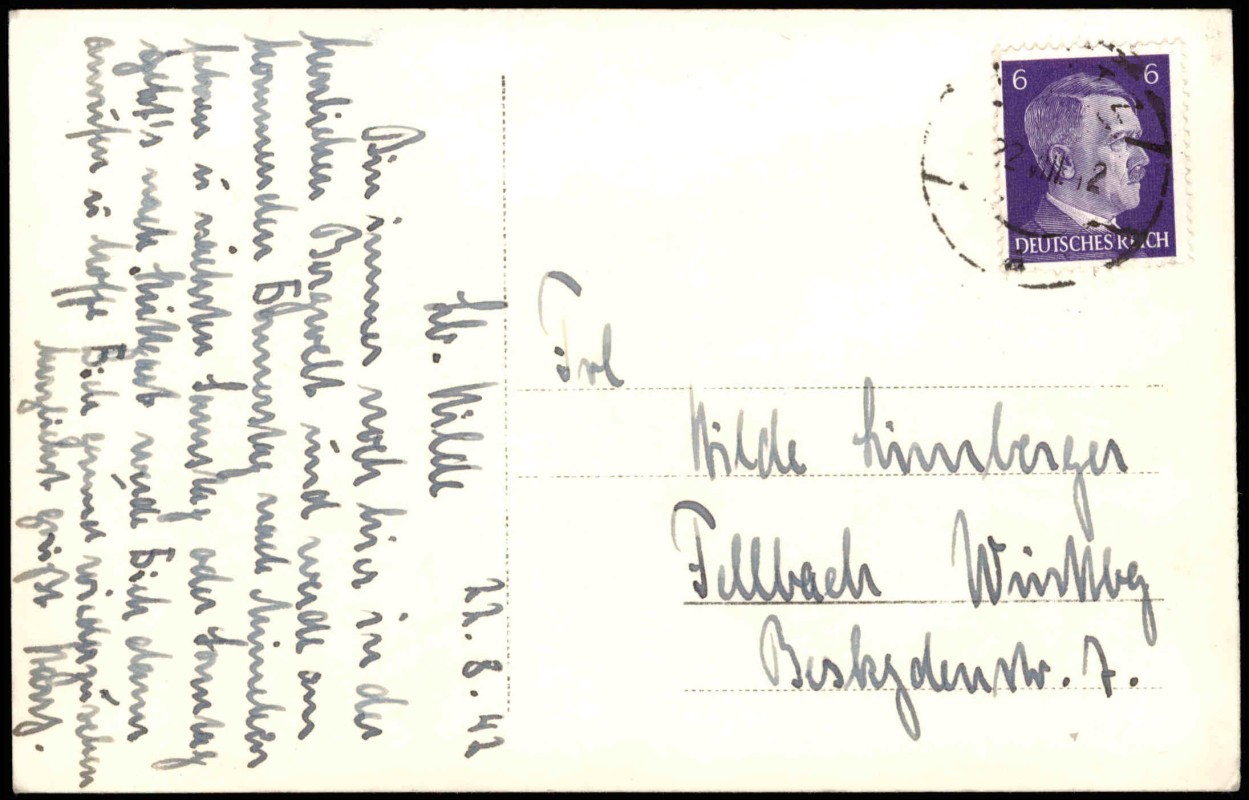 22.8.42
Lb. Hilde
Bin immer noch hier in der
herrlichen Bergwelt und werde am
kommenden Donnerstag nach München
fahren u nächsten Samstag oder Sonntag
geht's nach Stuttgart werde Dich dann
anrufen u hoffe Dich gesund wiederzusehen
herzlichst grüßt
6 6
DEUTSCHES REICH
Frl
Hilde Limberger
Fellbach Württbg
Beskydenstr. 7.